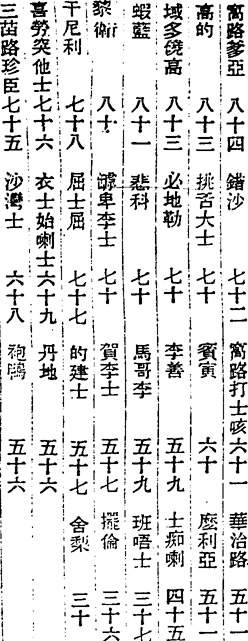 窩路爹亞 八十四 錯沙 七十二 窩路打士咳 六十一 華治路 五十一
高的 八十三 挑舌大士 七十 賓寅 六十 麼利亞 五十一
域多僥高 八十三 必地勒 七十 李善 五十九 士痴喇 四十五
蝦藍 八十一 悲科 七十 馬哥李 五十九 班唔士 三十七
黎衛 八十 卑李士 七十 賀李士 五十七 擺倫 三十六
干尼利 七十八 屈士屈 七十七 的建士 五十七 舍梨 三十
喜勞突他士 七十六 衣士始喇士 六十九 丹地 五十六
三苗路珍臣 七十五 沙灣士 六十八 砲 五十六